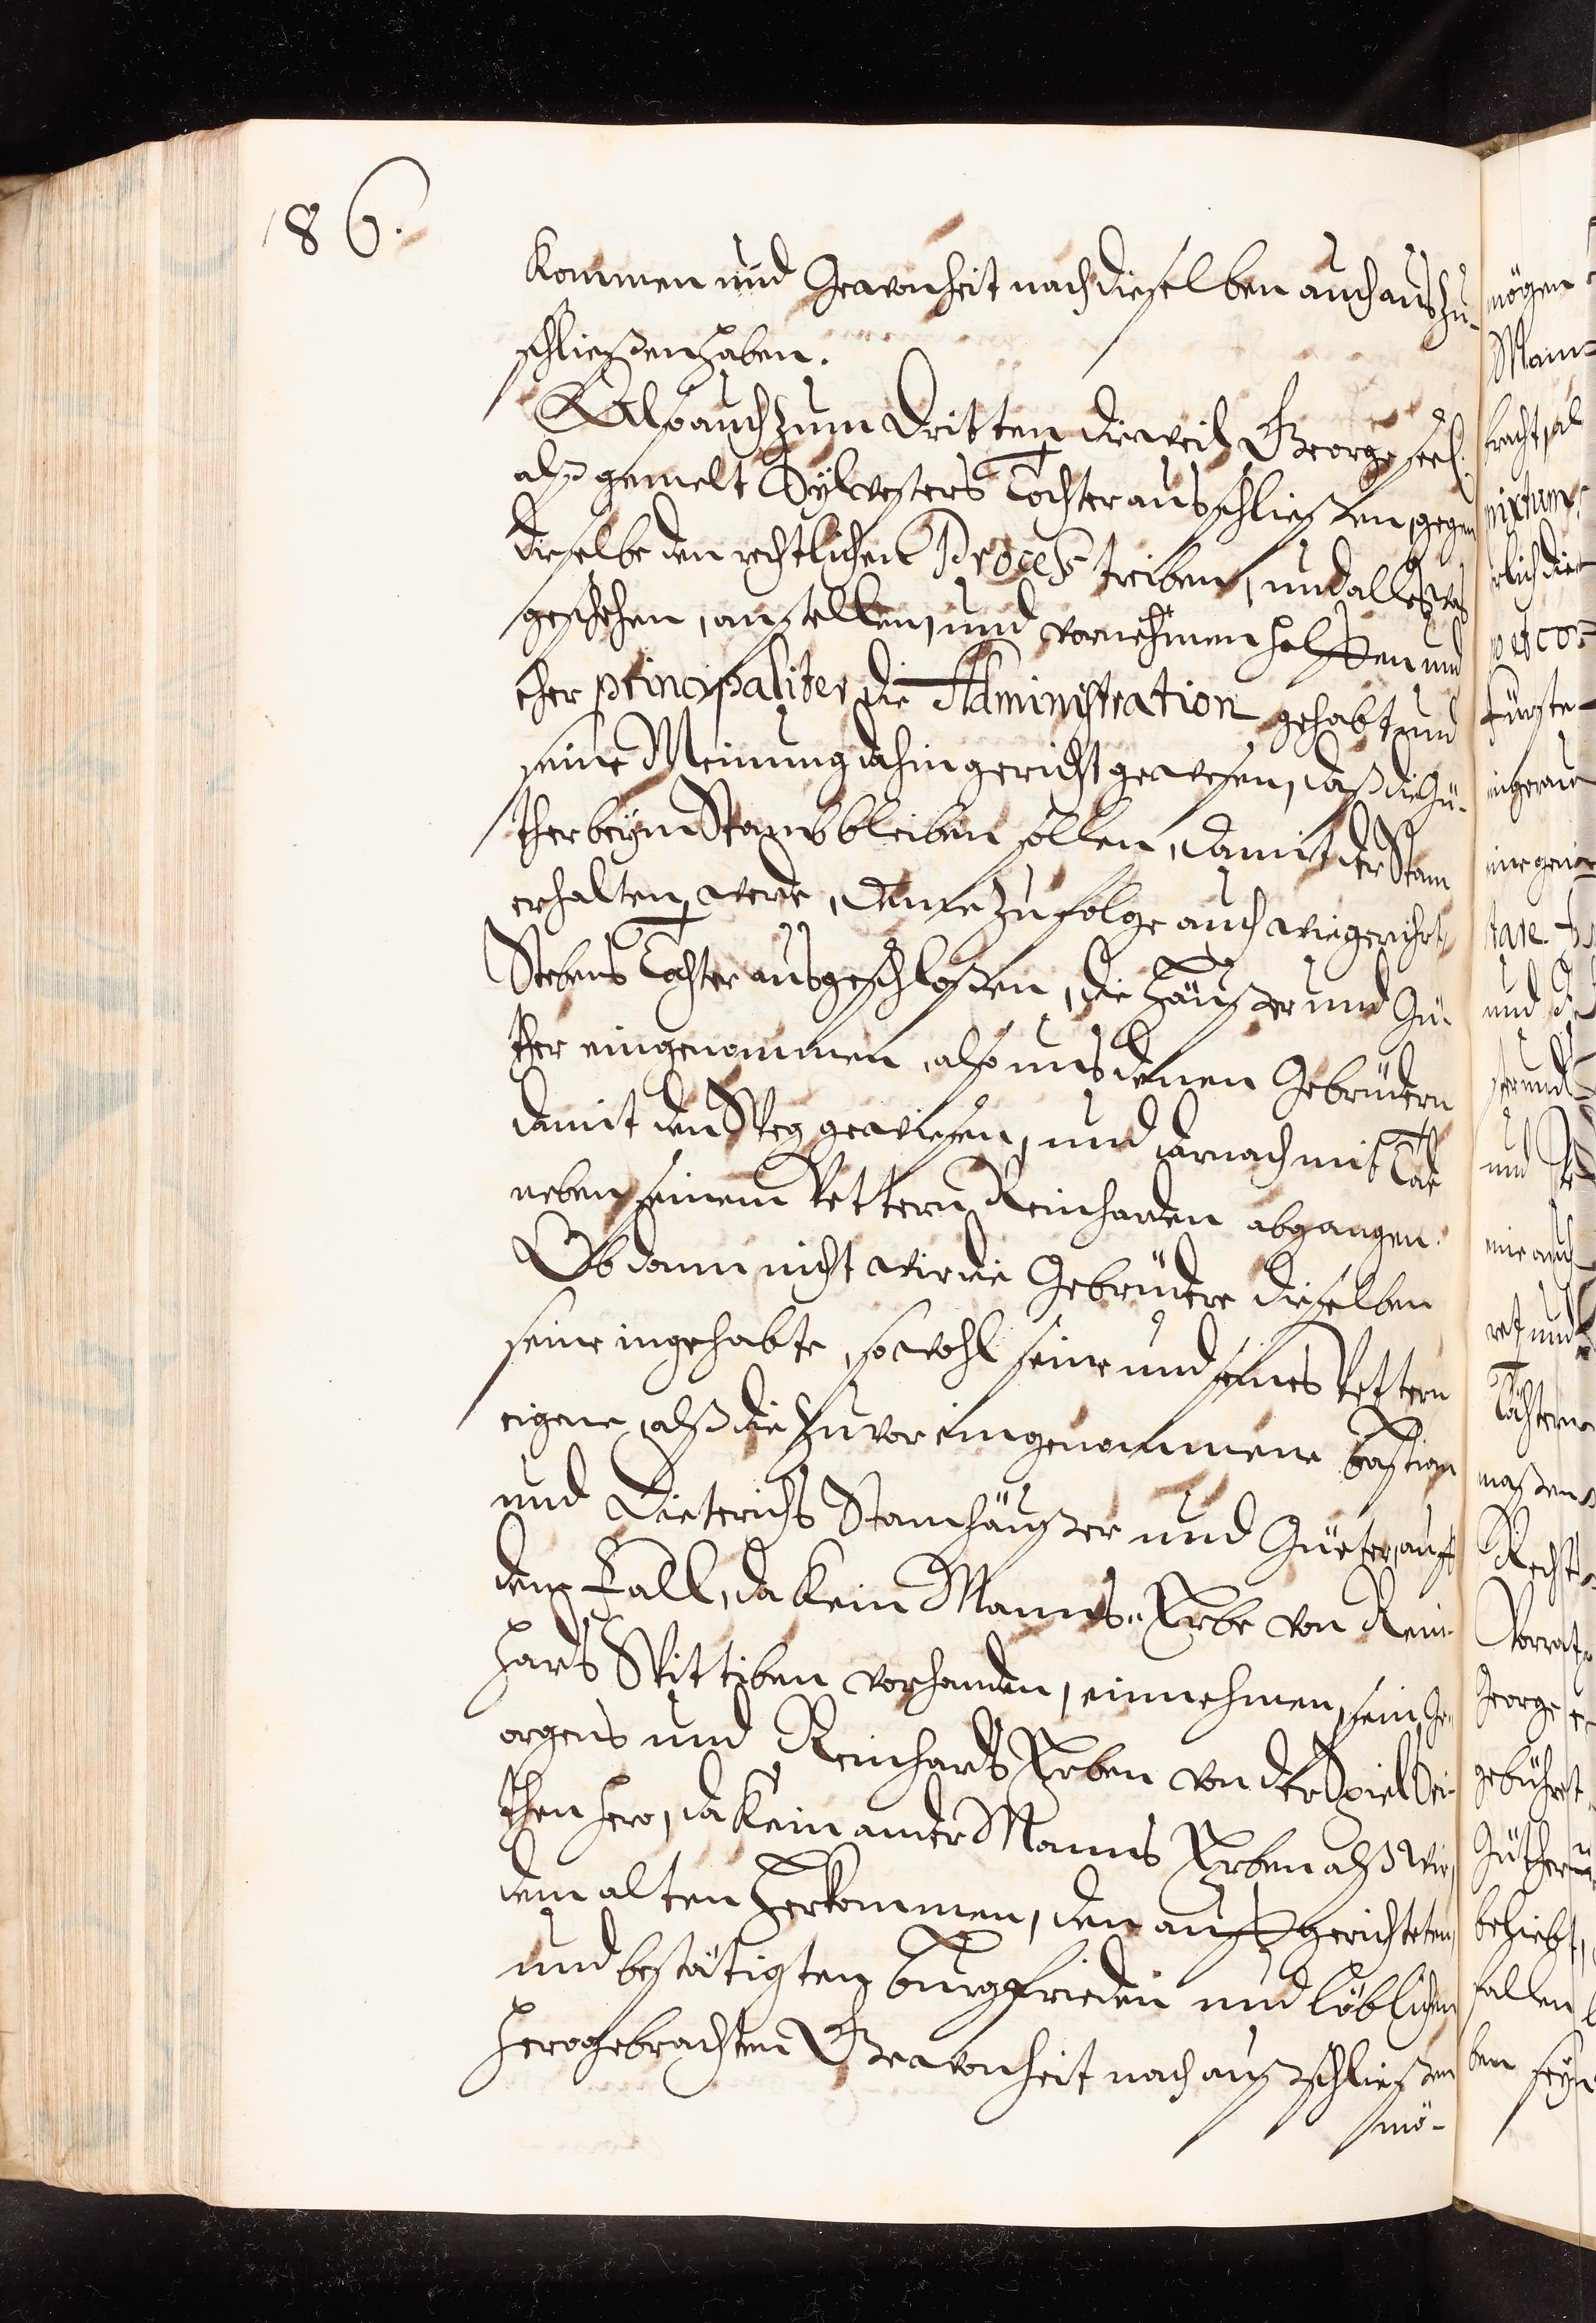 186.
kommen und Gewonheit nach dieselben auch auszu-
schließen haben.
Also auch zum dritten dieweil George seel:
alß gemelt Sylvesters Tochter ausschließen, gegen
dieselbe den rechtlichen Proceß treiben, und alles was
geschehen, anstellen, und vornehmen helffen und
eher principaliter die Administration gehabt und
seine Meinung dahin gericht gewesen, daß die Gü-
ther beym Stamb bleiben sollen, damit der Stam
erhalten werde, deme zu folge auch wie gericht
Stebens Tochter ausgeschloßen, die Häuser und Gü-
ther eingenommen, also uns denen Gebrüdern
damit den Weg gewiesen, und darnach mit Tod
neben seinem Vettern Reinharden abgangen.
Ob dann nicht wir die Gebrüdere dieselben
seine ingehabte, sowohl seine und seines Vettern
eigene, alß die zuvor eingenommene Bastian
und Dieterichs Stamhäuser und Güeter, auf
dem Fall, da kein Manns-Erbe von Rein-
hards Wittiben vorhanden, einnehmen, sein Ge-
orgens und Reinhards Erben von der Spiel Sei-
then hero, da kein ander Manns Erben alß wir,
dem alten Herkommen, den auffgerichteten,
und bestätigten Burgfrieden und löblichen
herogebrachten Gewonheit nach ausschließen
mö-
mögen
Mann-
bracht, al
mixtum
rlich die
et co-
Fürste
eingerau
eine gen
tare
und
ster und
und
mir auch
ret und
Töchtern
maßen
Rechts
Vorrath
George
gebühret
Güther
beliebt,
fallen
ben seyn